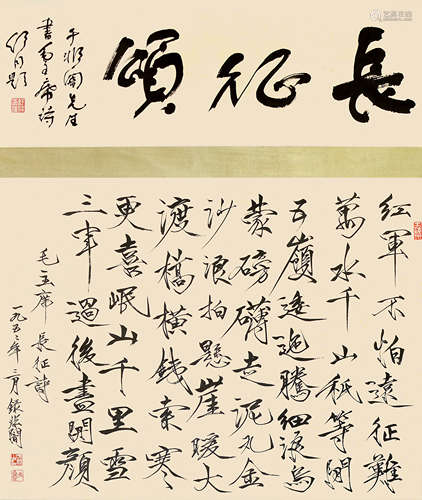 長征頌
于非闇先生
書毛主席詩
題
紅軍不怕遠征難
萬水千山祇等閒
五嶺逶迤騰細浪烏
蒙磅礴走泥丸金
沙浪拍懸崖暖大
渡橋橫鐵索寒
更喜岷山千里雪
三軍過後盡開顏
毛主席 長征詩
一九五年三月 非闇